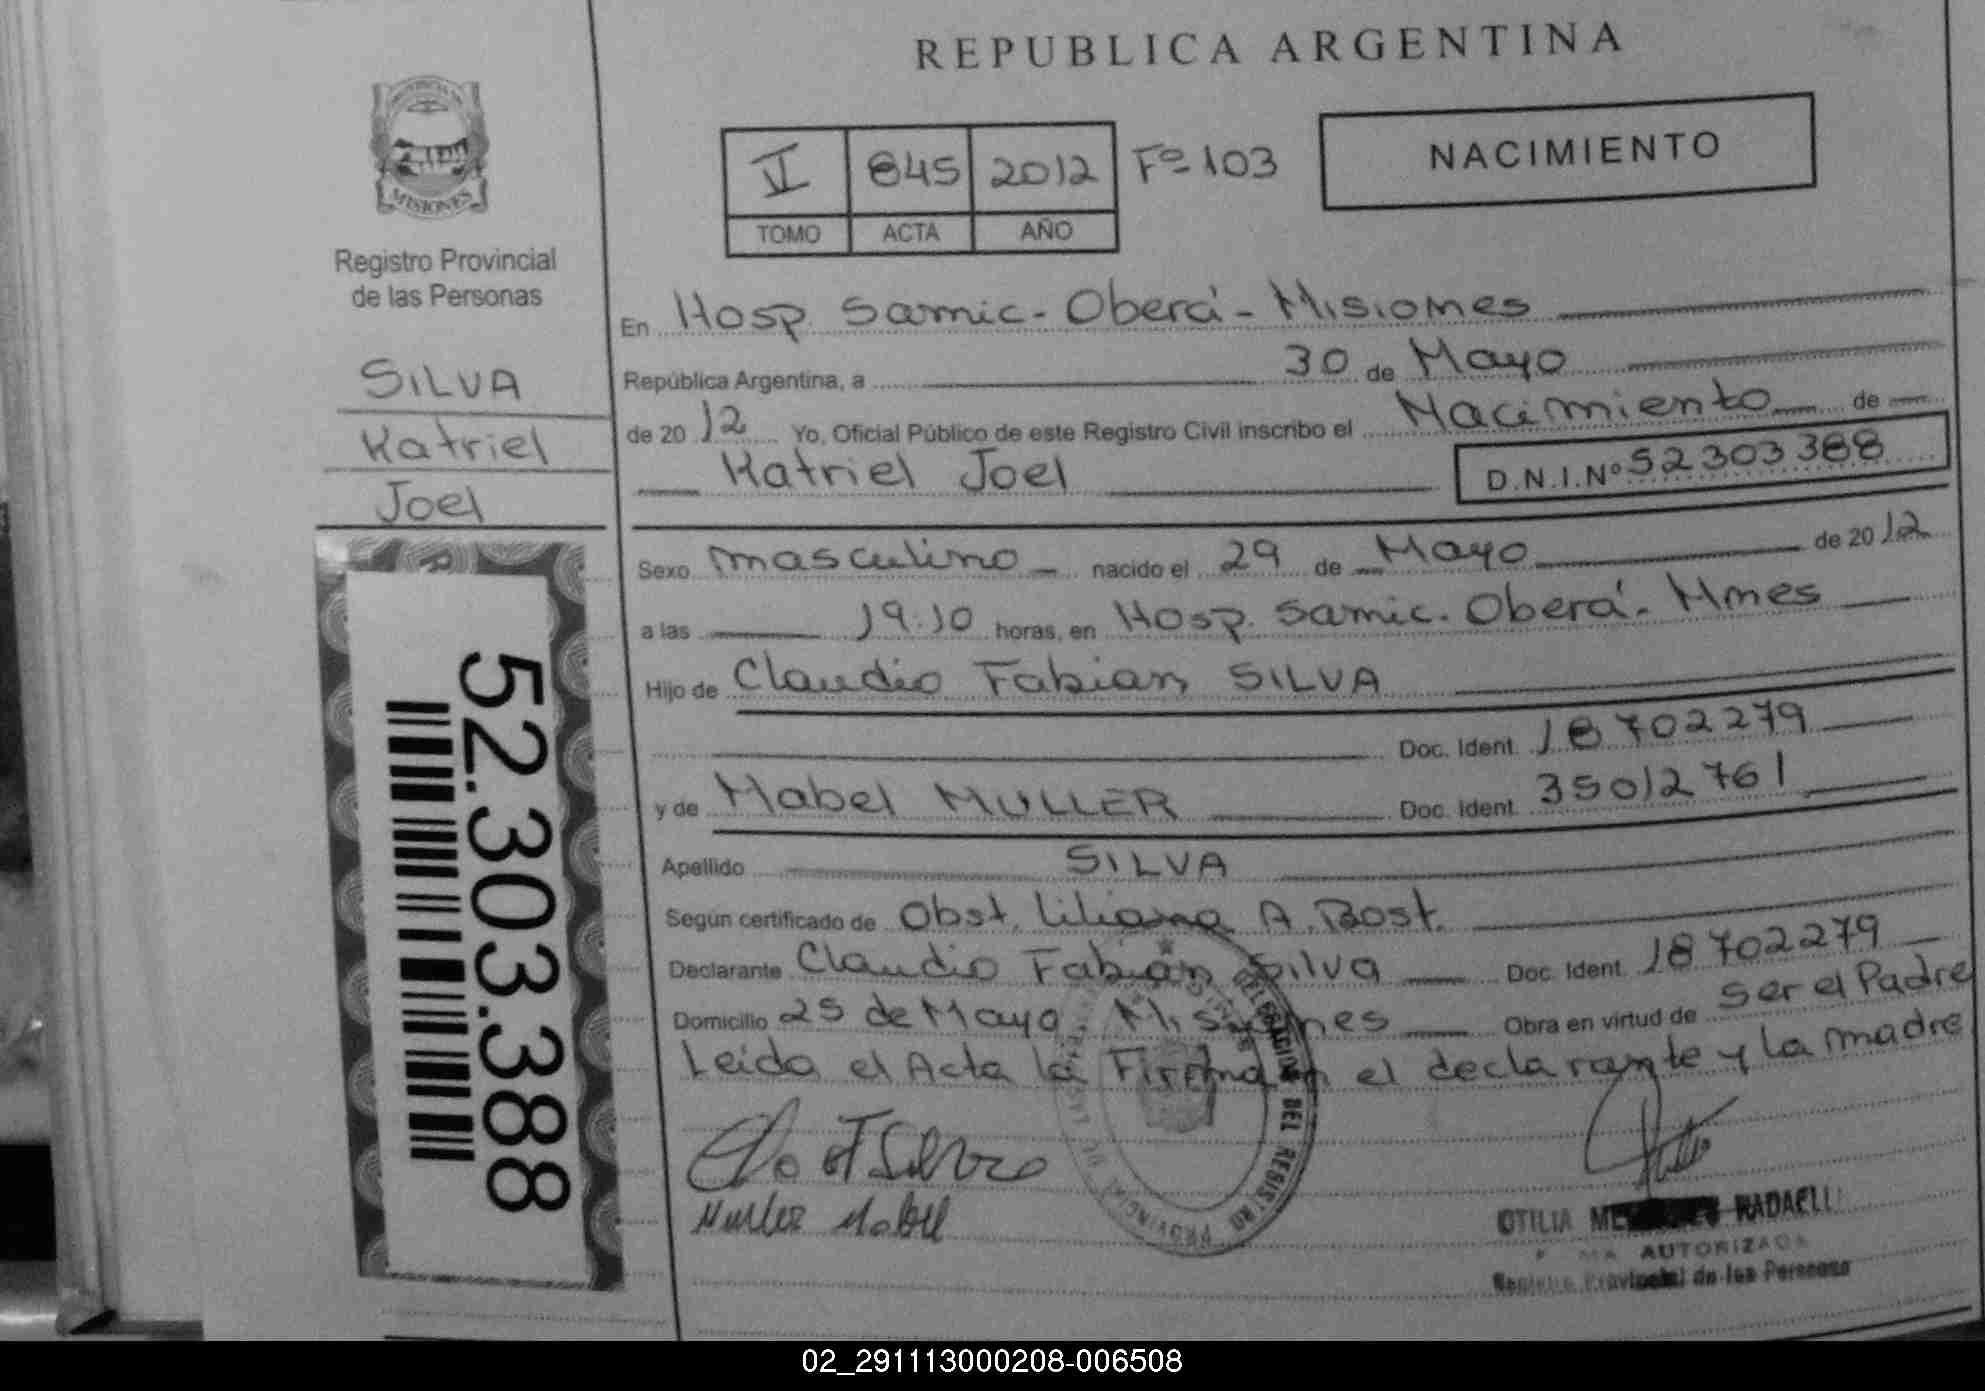 REPUBLICA ARGENTINA
PROVINCIA DE
MISIONES
Registro Provincial
de las Personas
SILVA
Katriel
Joel
52.303.388
II 845 2012 Fº 103
TOMO ACTA AÑO
NACIMIENTO
En Hosp. Samic - Oberá - Misiones
República Argentina, a 30 de Mayo
de 2012 Yo, Oficial Público de este Registro Civil inscribo el Nacimiento de
Katriel Joel D.N.I.Nº 52303388
Sexo masculino nacido el 29 de Mayo de 2012
a las 19.10 horas, en Hosp. Samic. Oberá - Mnes
Hijo de Claudio Fabian SILVA
Doc. Ident. 18702279
y de Mabel MULLER Doc. Ident. 35012761
Apellido SILVA
Según certificado de Obst. Liliana A. Bost.
Declarante Claudio Fabián Silva Doc. Ident. 18702279
Domicilio 25 de Mayo Misiones Obra en virtud de ser el Padre
Leida el Acta la Firman el declarante y la madre
DELEGACION DEL REGISTRO PROVINCIAL DE LAS
Muller Mabel
OTILIA RADAELLI
AUTORIZADA
Registro Provincial de las Personas
02_291113000208-006508